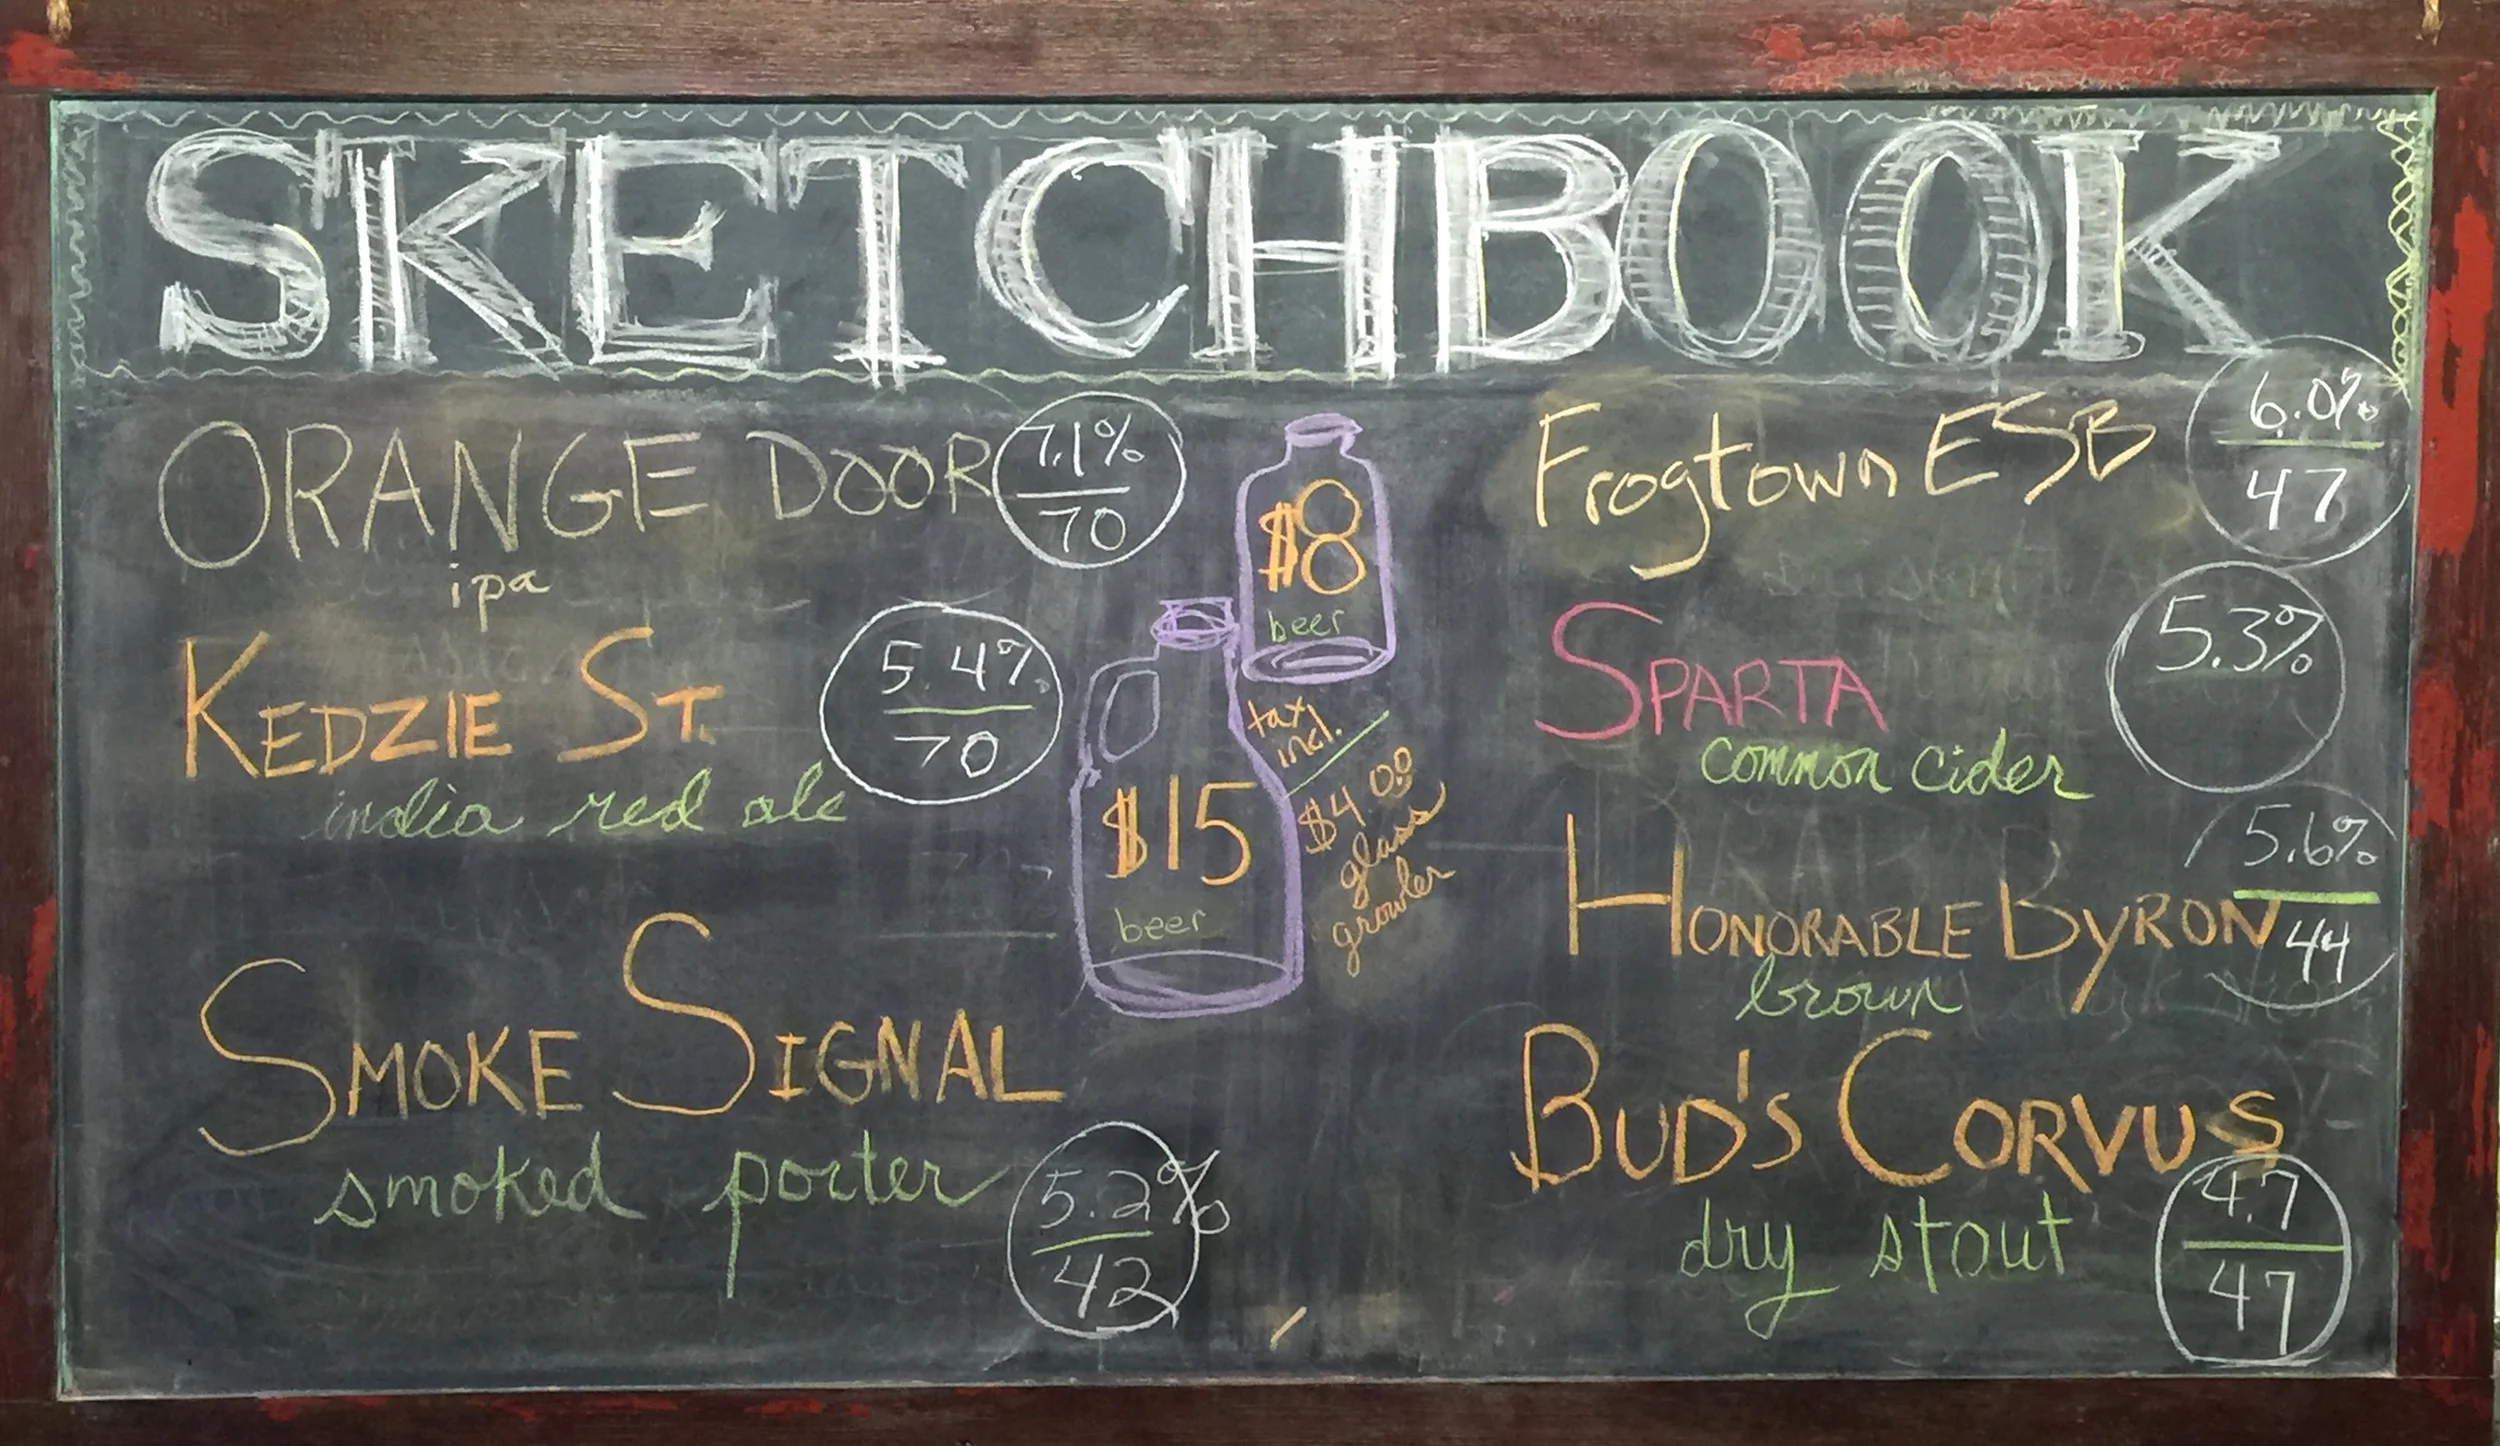 SKETCHBOOK
ORANGE DOOR
7.1%
70
ipa
KEDZIE ST.
5.4%
70
india red ale
SMOKE SIGNAL
smoked porter
5.2%
42
$8
beer
tax
incl.
$15
beer
$4.00
glass
growler
Frogtown ESB
6.0%
47
SPARTA
5.3%
common cider
HONORABLE BYRON
5.6%
44
brown
BUD'S CORVUS
dry stout
4.7
47